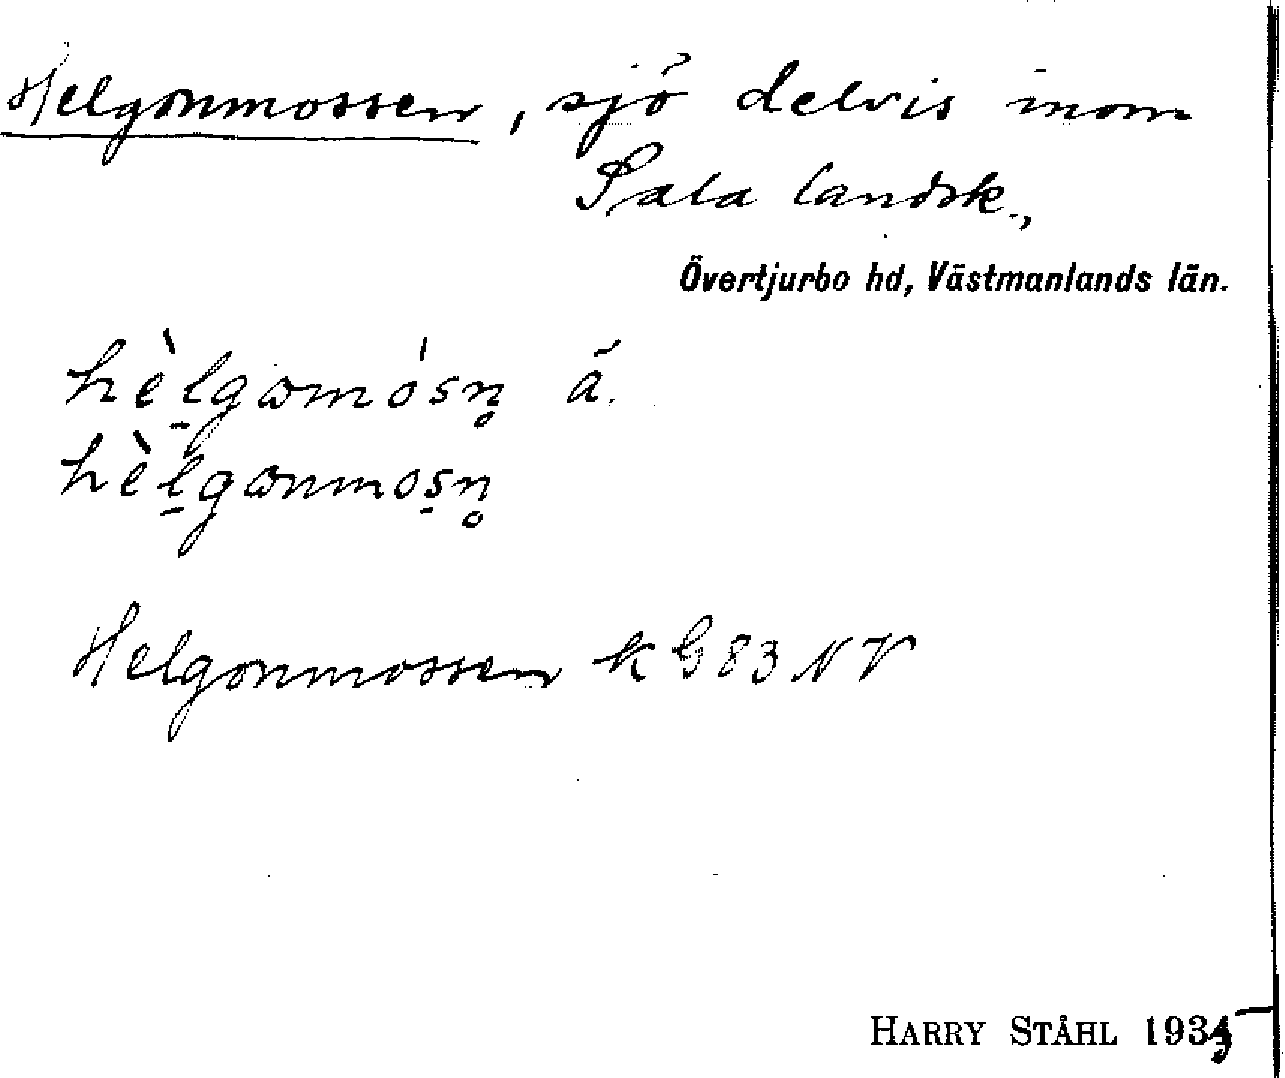 Helgonmossen, sjö delvis inom
Sala landsk.,
Övertjurbo hd, Västmanlands län.
hὲl̠gωmósn̥ ä.
hὲl̠gωnmos̠n̥
Helgonmossen k G 83 NV
HARRY STÅHL 1935